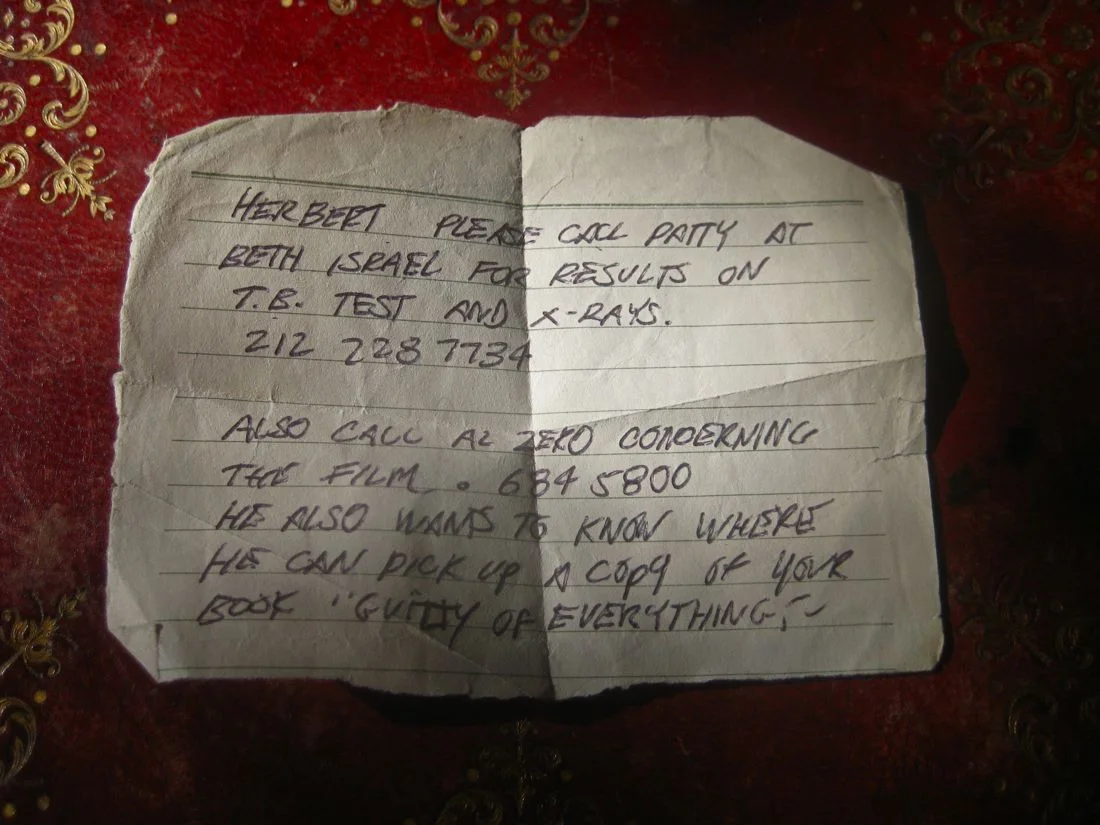 HERBERT PLEASE CALL PATTY AT
BETH ISRAEL FOR RESULTS ON
T.B. TEST AND X-RAYS.
212 228 7734
ALSO CALL AL ZERO CONCERNING
THE FILM. 684 5800
HE ALSO WANTS TO KNOW WHERE
HE CAN PICK UP A COPY OF YOUR
BOOK "GUILTY OF EVERYTHING,"